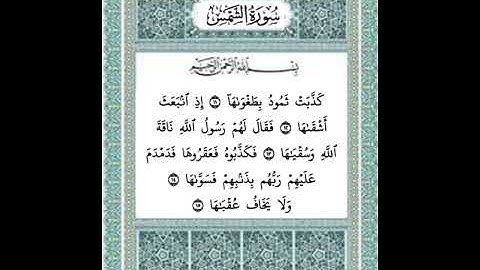 سُورَةُ الشَّمْسِ
بِسْمِ اللَّهِ الرَّحْمَٰنِ الرَّحِيمِ
كَذَّبَتْ ثَمُودُ بِطَغْوَىٰهَآ ۝١١ إِذِ ٱنۢبَعَثَ
أَشْقَىٰهَا ۝١٢ فَقَالَ لَهُمْ رَسُولُ ٱللَّهِ نَاقَةَ
ٱللَّهِ وَسُقْيَـٰهَا ۝١٣ فَكَذَّبُوهُ فَعَقَرُوهَا فَدَمْدَمَ
عَلَيْهِمْ رَبُّهُم بِذَنۢبِهِمْ فَسَوَّىٰهَا ۝١٤
وَلَا يَخَافُ عُقْبَـٰهَا ۝١٥